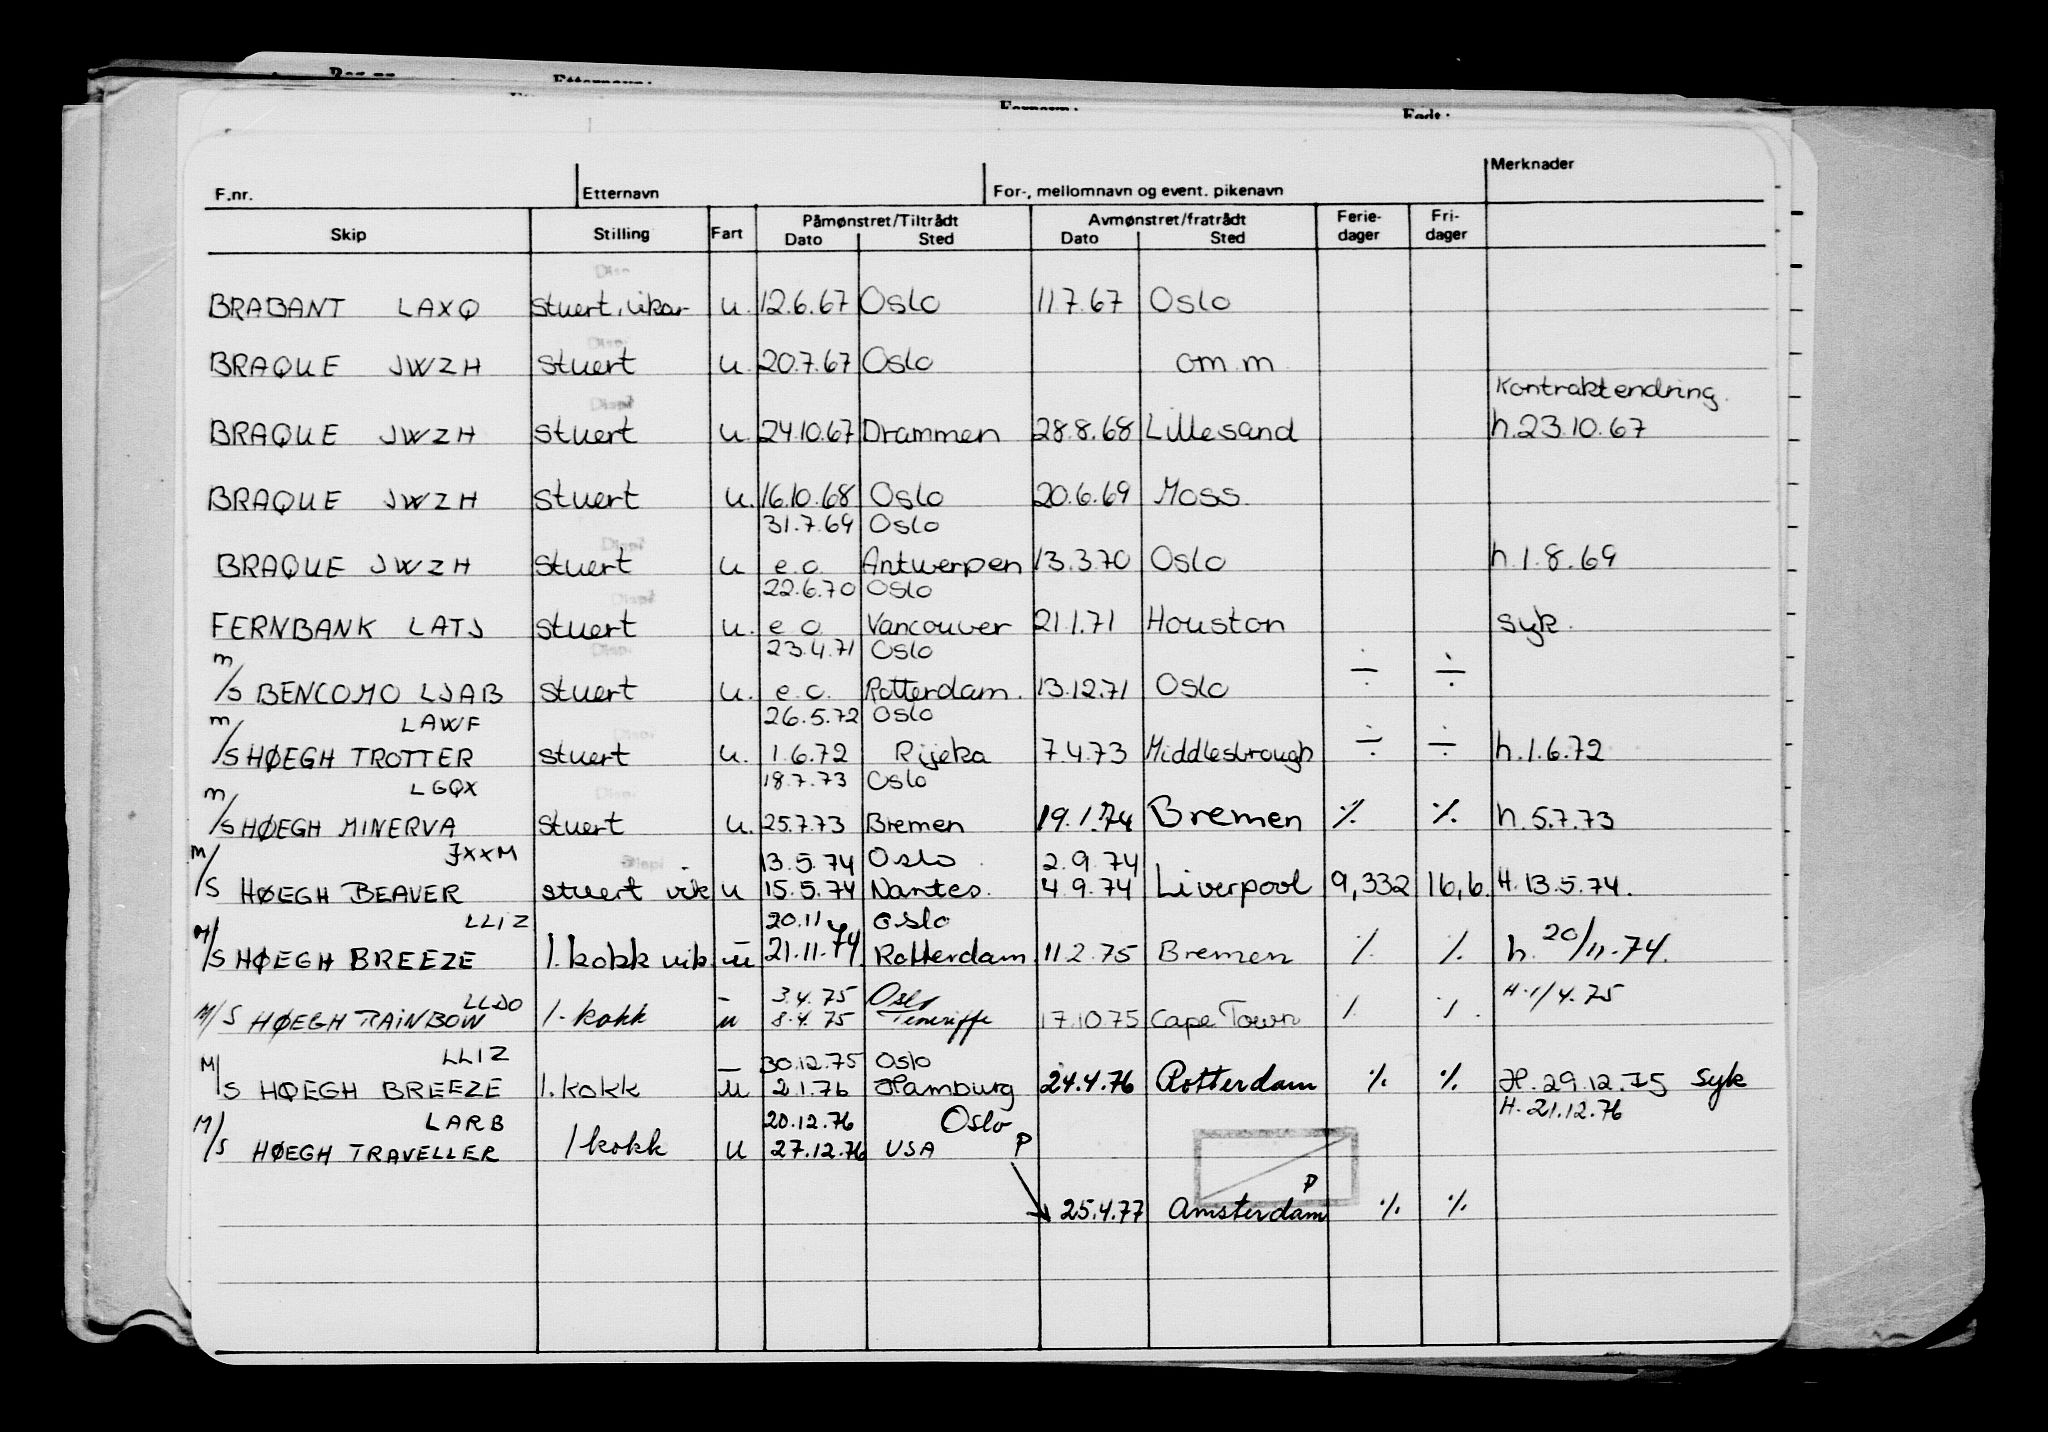 Merknader
F.nr. Etternavn For-, mellomnavn og event. pikenavn
Påmønstret/Tiltrådt Avmønstret/fratrådt Ferie- Fri-
Skip Stilling Fart Dato Sted Dato Sted dager dager
BRABANT LAXQ stuert, vikar u. 12.6.67 Oslo 11.7.67 Oslo
BRAQUE JWZH stuert u. 20.7.67 Oslo om m
Kontraktendring.
BRAQUE JWZH stuert u. 24.10.67 Drammen 28.8.68 Lillesand h.23.10.67
BRAQUE JWZH stuert u. 16.10.68 Oslo 20.6.69 Moss.
31.7.69 Oslo
BRAQUE JWZH stuert u e.o. Antwerpen 13.3.70 Oslo h.1.8.69
22.6.70 Oslo
FERNBANK LATJ stuert u. e.o. Vancouver 21.1.71 Houston syk.
23.4.71 Oslo
m/s BENCOMO LJAB stuert u. e.o. Rotterdam. 13.12.71 Oslo ÷ ÷
LAWF 26.5.72 Oslo
m/s HØEGH TROTTER stuert u. 1.6.72 Rijeka 7.4.73 Middlesbrough ÷ ÷ h.1.6.72
LGQX 18.7.73 Oslo
m/s HØEGH MINERVA stuert u. 25.7.73 Bremen 19.1.74 Bremen ٪ ٪ h.5.7.73
JXXM 13.5.74 Oslo 2.9.74
M/S HØEGH BEAVER stuert vik u 15.5.74 Nantes. 4.9.74 Liverpool 9,332 16,6 H.13.5.74.
LLIZ 20.11 Oslo
M/S HØEGH BREEZE 1. kokk vik u 21.11.74 Rotterdam 11.2.75 Bremen ٪ ٪ h. 20/11-74.
LLDO 3.4.75 Oslo H.1/4.75
M/S HØEGH RAINBOW 1. kokk u 8.4.75 Teneriffe 17.10.75 Cape Town ٪ ٪
LLIZ 30.12.75 Oslo
M/S HØEGH BREEZE 1. kokk u 2.1.76 Hamburg 24.4.76 Rotterdam ٪ ٪ H.29.12.75 Syk
LARB 20.12.76 Oslo H.21.12.76
M/S HØEGH TRAVELLER 1 kokk u 27.12.76 USA P
P
25.4.77 Amsterdam ٪ ٪